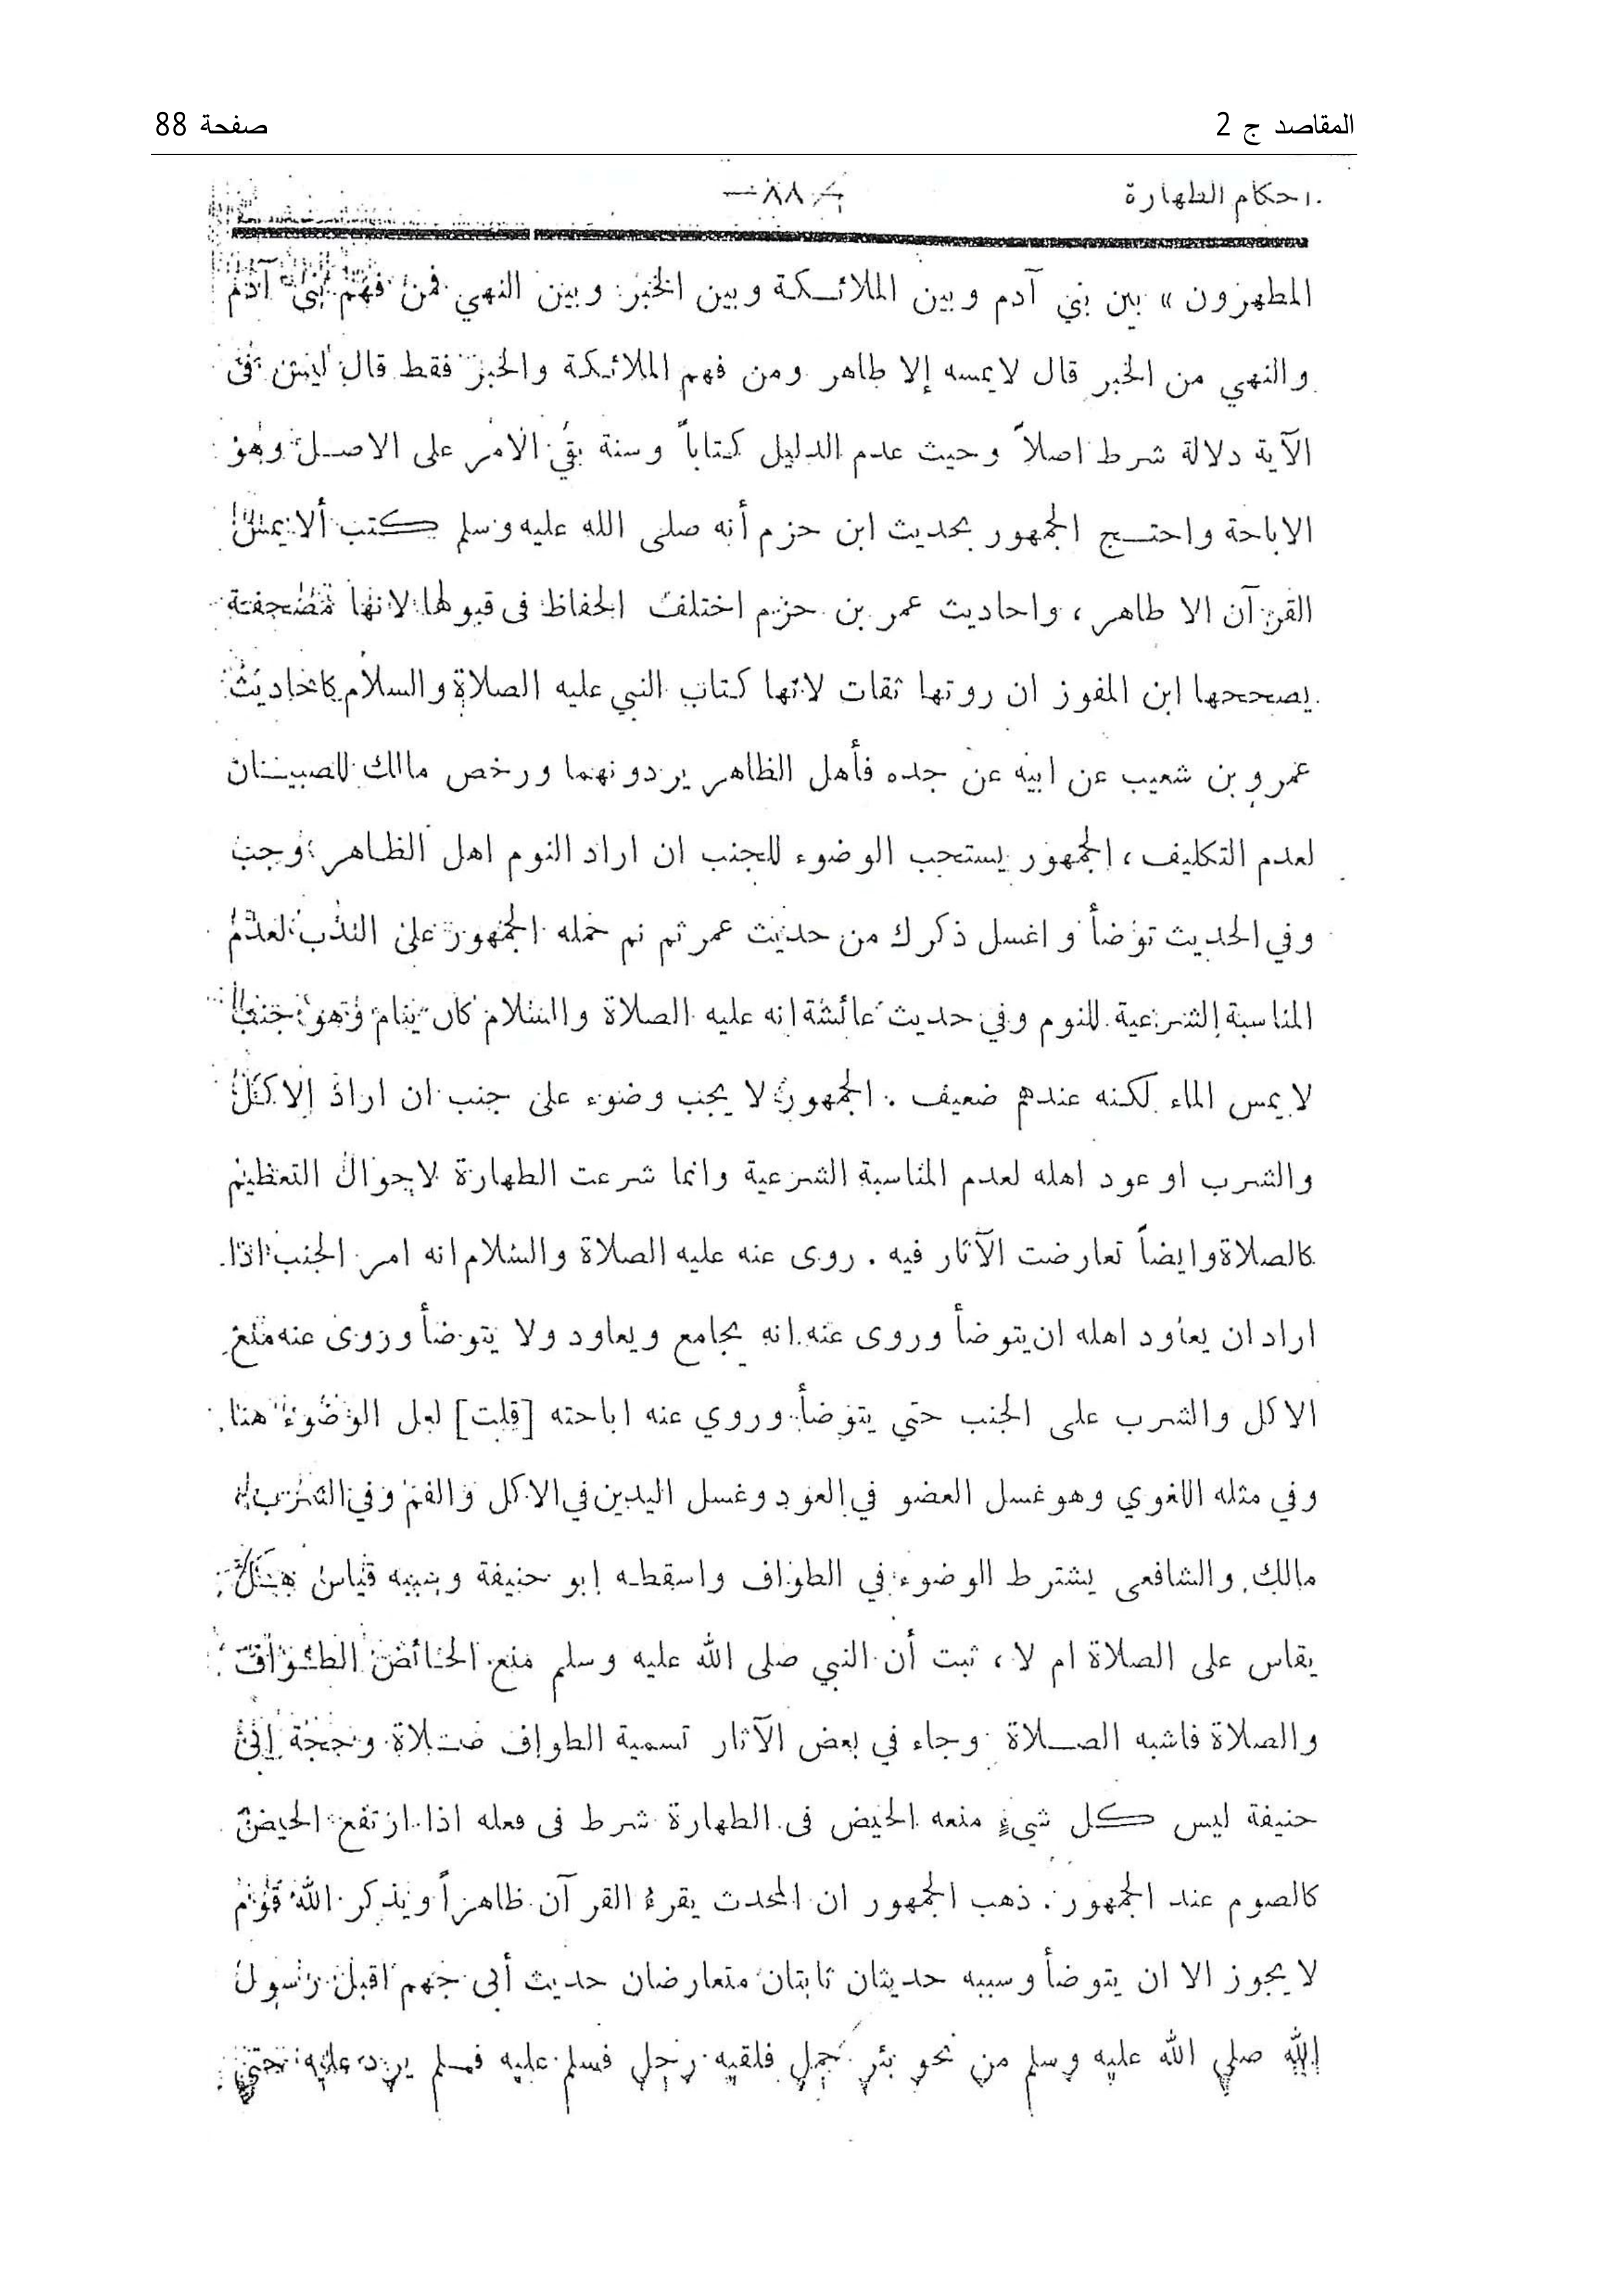 المقاصد ج 2
صفحة 88
احكام الطهارة
— ٨٨ —
المطهرون » بين بني آدم وبين الملائكة وبين الخبر وبين النهي فمن فهم بنى آدم
والنهي من الخبر قال لايمسه إلا طاهر ومن فهم الملائكة والخبر فقط قال ليس فى
الآية دلالة شرط اصلاً وحيث عدم الدليل كتاباً وسنة بقي الامر على الاصل وهو
الاباحة واحتج الجمهور بحديث ابن حزم أنه صلى الله عليه وسلم كتب ألا يمس
القرآن الا طاهر ، واحاديث عمر بن حزم اختلف الحفاظ فى قبولها لانها مصحفة
يصححها ابن المفوز ان روتها ثقات لانها كتاب النبي عليه الصلاة والسلام كاحاديث
عمرو بن شعيب عن ابيه عن جده فأهل الظاهر يردونهما ورخص مالك للصبيان
لعدم التكليف ، الجمهور يستحب الوضوء للجنب ان اراد النوم اهل الظاهر وجب
وفي الحديث توضأ و اغسل ذكرك من حديث عمر ثم نم حمله الجمهور على الندب لعدم
المناسبة الشرعية للنوم وفي حديث عائشة انه عليه الصلاة والسلام كان ينام وهو جنب
لا يمس الماء لكنه عندهم ضعيف . الجمهور لا يجب وضوء على جنب ان اراد الاكل
والشرب او عود اهله لعدم المناسبة الشرعية وانما شرعت الطهارة لاحوال التعظيم
كالصلاة وايضاً تعارضت الآثار فيه . روى عنه عليه الصلاة والسلام انه امر الجنب اذا
اراد ان يعاود اهله ان يتوضأ وروى عنه انه يجامع ويعاود ولا يتوضأ وروى عنه منع
الاكل والشرب على الجنب حتي يتوضأ وروي عنه اباحته [قلت] لعل الوضوء هنا
وفي مثله اللغوي وهو غسل العضو في العود وغسل اليدين في الاكل والفم وفي الشرب
مالك والشافعى يشترط الوضوء في الطواف واسقطه ابو حنيفة وسببه قياس هل
يقاس على الصلاة ام لا ، ثبت أن النبي صلى الله عليه وسلم منع الحائض الطواف
والصلاة فاشبه الصلاة وجاء في بعض الآثار تسمية الطواف صلاة وحجة ابى
حنيفة ليس كل شيءٍ منعه الحيض فى الطهارة شرط فى فعله اذا ارتفع الحيض
كالصوم عند الجمهور . ذهب الجمهور ان المحدث يقرءُ القرآن ظاهراً ويذكر الله قوم
لا يجوز الا ان يتوضأ وسببه حديثان ثابتان متعارضان حديث أبى جهم اقبل رسول
الله صلى الله عليه وسلم من نحو بئر جمل فلقيه رجل فسلم عليه فسلم يرد عليه حتى